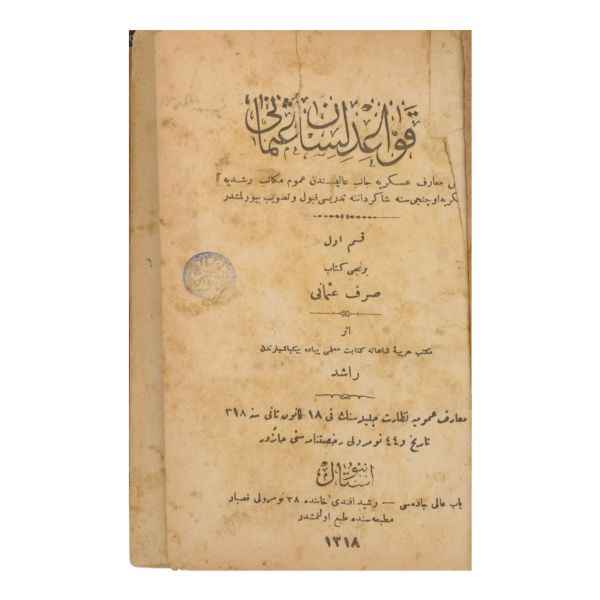 قواعد لسان عثمانی
معارف عسكریه جانب عالیسندن عموم مكاتب رشدیه
اوچنجی سنه شاكرداننه تدریسی قبول و تصویب بیورلمشدر
قسم اول
برنجی كتاب
صرف عثمانی
اثر
مكتب حربیۀ شاهانه كتابت معلمی پیاده بیكباشیلرندن
راشد
معارف عمومیه نظارت جلیله سنك فی ١٨ كانون ثانی سنه ٣١٨
تاریخ و ٤٤ نومرولی رخصتنامه سنی حائزدر
استانبول
باب عالی جاده سی — رشید افندی خاننده ٣٨ نومرولی قصبار
مطبعه سنده طبع اولنمشدر
١٣١٨